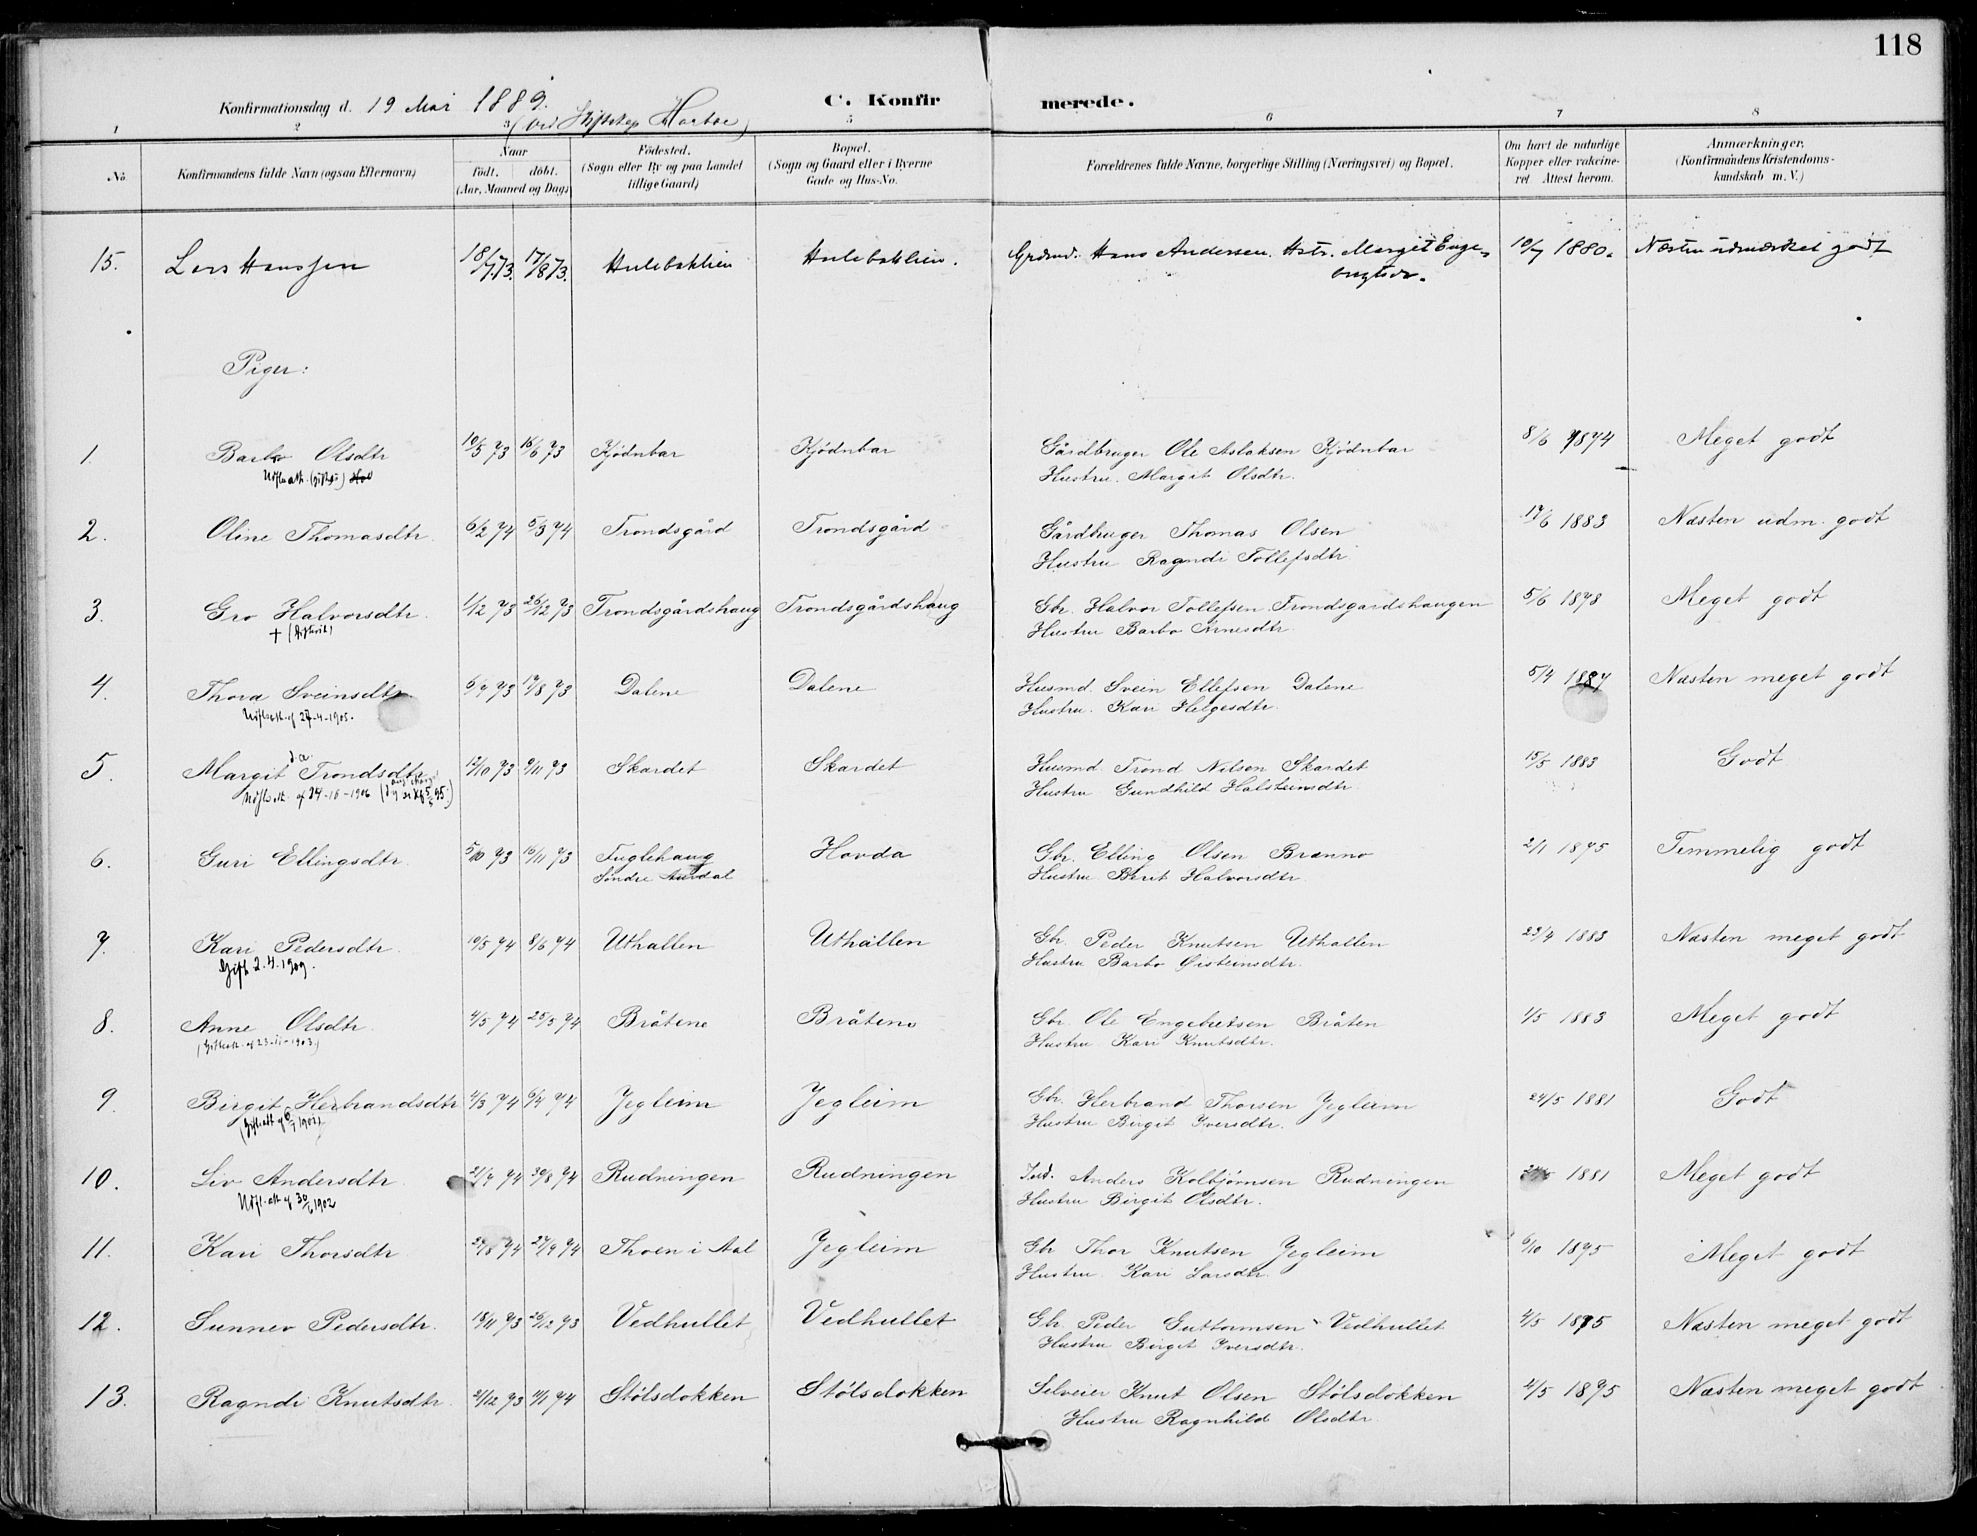 118
Konfirmationsdag d. 19 Mai 1889. C. Konfirmerede.
(ved Hartoe)
1 2 3 5 6 7 8
No. Konfirmandens fulde Navn (ogsaa Efternavn) Naar født. døbt. (Aar, Maaned og Dag) Fødested. (Sogn eller By og paa Landet tillige Gaard) Bopæl. (Sogn og Gaard eller i Byerne Gade og Hus-No. Forældrenes fulde Navne, borgerlige Stilling (Næringsvei) og Bopæl. Om havt de naturlige Kopper eller vakcineret Attest herom. Anmærkninger, (Konfirmandens Kristendomskundskab m. V.)
15. Lars Hanssen 18/7 73. 17/8 73. Hulebakkien Hulebakkien. Grdmd. Hans Andersen. Hstr. Margit Enge- 10/7 1880. Næsten udmærket godt
Piger:
1. Barbo Olsdtr 10/5 73 15/6 73 Kjødnbar Kjødnbar Gårdbruger Ole Aslaksen Kjødnbar 8/6 1874 Meget godt
Hustru. Margit Olsdtr.
2. Oline Thomasdtr. 6/2 74 5/3 74 Trondsgård Trondsgård Gårdbruger Thomas Olsen 17/6 1883 Næsten udm. godt
Hustru Ragndi Tollefsdtr
3. Gro Halvorsdtr. 1/12 73 26/12 73 Trondsgårdshaug Trondsgårdshaug Gbr. Halvor Tollefsen Trondsgardshaugen 5/6 1878 Meget godt
+ Hustru Barbo Arnesdtr.
4. Thora Sveinsdtr. 6/7 73 17/8 73 Dalene Dalene Husmd. Svein Ellefsen Dalene 5/4 1887 Næsten meget godt
27-4-1905. Hustru. Kari Helgesdtr.
5. Margit Trondsdtr 12/10 73 9/11 73 Skardet Skardet Husmd Trond Nilsen Skardet 15/5 1883 Godt
Hustru Gundhild Halsteinsdtr.
6. Guri Ellingsdtr. 5/10 73 16/11 73 Fuglehaug Hovda Gbr. Elling Olsen Brænno 2/1 1875 Temmelig godt
Søndre Aurdal Hustru Birit Halvorsdtr.
7. Kari Pedersdtr. 10/5 74 8/6 74 Uthallen Uthallen Gbr. Peder Knutsen Uthallen 23/4 1883 Næsten meget godt
Gift 2.4.1909. Hustru Barbo Øisteinsdtr.
8. Anne Olsdtr. 4/5 74 25/5 74 Bråtene Bråtene Gbr. Ole Engebretsen Bråten 4/5 1883 Meget godt
(Gifteatt. af 23-11-1903.) Hustru Kari Knutsdtr.
9. Birgit Herbrandsdtr 4/3 74 6/4 74 Jegleim Jegleim Gbr. Herbrand Thorsen Jegleim 24/5 1881 Godt
Hustru Birgit Iversdtr.
10. Liv Andersdtr. 21/7 74 30/8 74 Rudningen Rudningen Ind. Anders Kolbjørnsen Rudningen 1881 Meget godt
Hustru Birgit Olsdtr.
11. Kari Thorsdtr 24/8 74 27/9 74 Thoen i Aal Jegleim Gbr Thor Knutsen Jegleim 6/10 1875 Meget godt
Hustru. Kari Larsdtr.
12. Sunnev Pedersdtr. 18/11 73 26/12 73 Vedhullet Vedhullet Gbr. Peder Guttormsen Vedhullet 4/5 1875 Næsten meget godt
Hustru Birgit Iversdtr.
13. Ragndi Knutsdtr. 2/12 73 11/1 74 Stølsdokken Stølsdokken Selveier Knut Olsen Stølsdokken 4/5 1875 Næsten meget godt
Hustru Ragnhild Olsdtr.